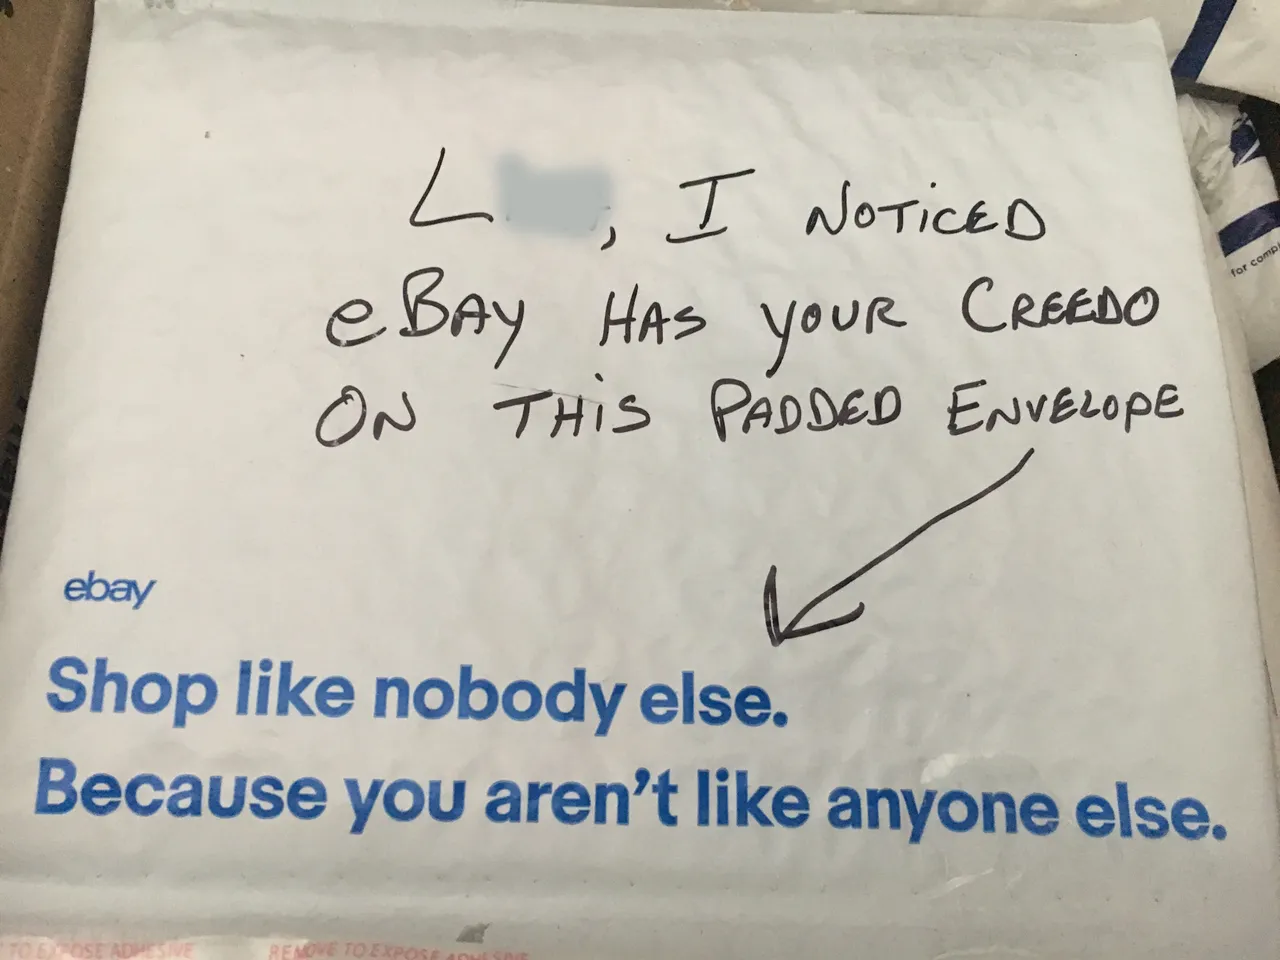 L , I NOTICED
eBAY HAS YOUR CREEDO
ON THIS PADDED ENVELOPE
ebay
Shop like nobody else.
Because you aren't like anyone else.
for comp
TO EXPOSE ADHESIVE REMOVE TO EXPOSE ADHESIVE